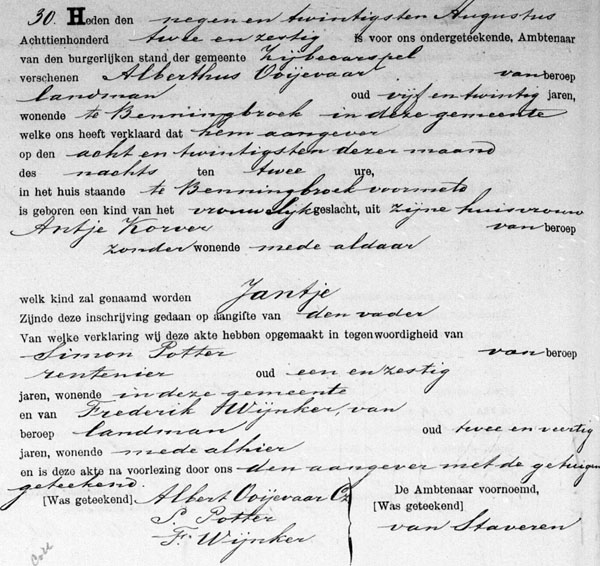 30. Heden den negen en twintigsten Augustus
Achttienhonderd twee en zestig is voor ons ondergeteekende, Ambtenaar
van den burgerlijken stand der gemeente Zijbecarspel
verschenen Alberthus Ooijevaar van beroep
landman oud vijf en twintig jaren,
wonende te Benningbroek in deze gemeente
welke ons heeft verklaard dat hem aangever
op den acht en twintigsten dezer maand
des nachts ten twee ure,
in het huis staande te Benningbroek voormeld
is geboren een kind van het vrouwelijk geslacht, uit zijne huisvrouw
Antje Korver van beroep
zonder wonende mede aldaar
welk kind zal genaamd worden Jantje
Zijnde deze inschrijving gedaan op aangifte van den vader
Van welke verklaring wij deze akte hebben opgemaakt in tegenwoordigheid van
Simon Potter van beroep
rentenier oud een en zestig
jaren, wonende in deze gemeente
en van Frederik Wijnker, van
beroep landman oud twee en veertig
jaren, wonende mede alhier
en is deze akte na voorlezing door ons den aangever met de getuigen
geteekend.
[Was geteekend] Albert Ooijevaar Cz
S. Potter
Fr. Wijnker
De Ambtenaar voornoemd,
[Was geteekend]
van Staveren